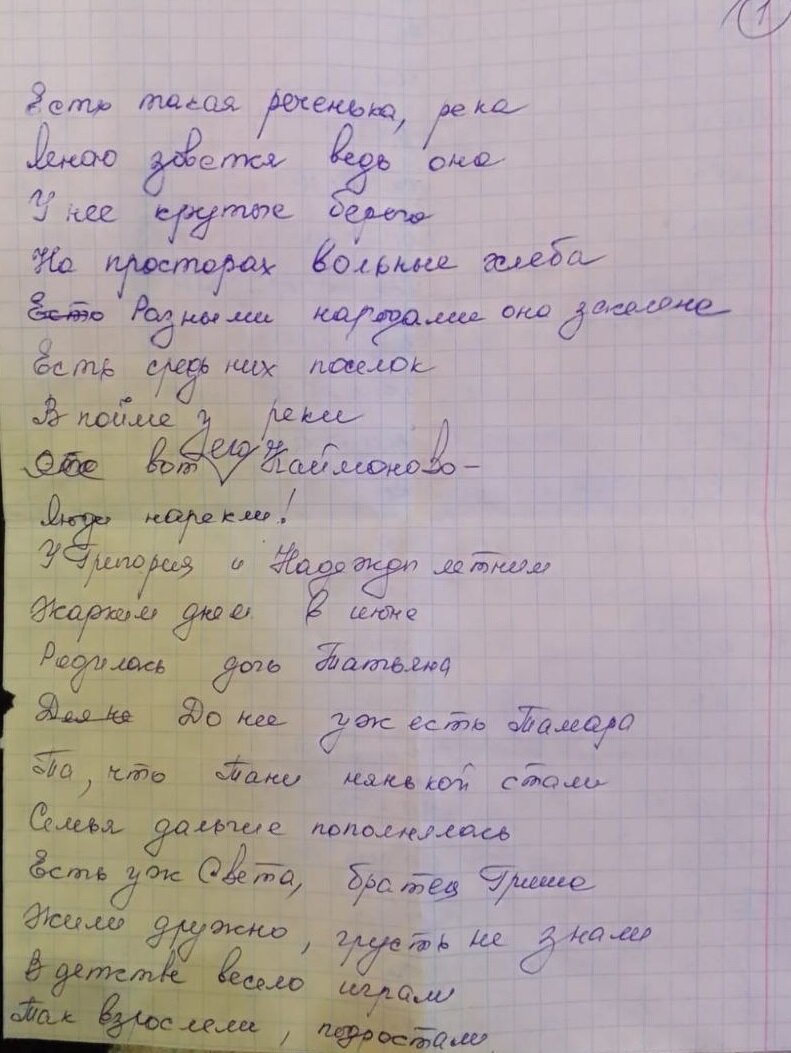 1
Есть такая реченька, река
Леною зовется ведь она
У нее крутые берега
На просторах вольные хлеба
Есть Разными народами она заселена
Есть средь них поселок
В пойме у реки
вот его Каймоново-
Люди нарекли!
У Григория и Надежды летним
Жарким днем в июне
Родилась дочь Татьяна
До нее уж есть Тамара
Та, что Тане нянькой стала
Семья дальше пополнялась
Есть уж Света, братец Гриша
Жили дружно, грусть не знали
В детстве весело играли
Так взрослели, подростали